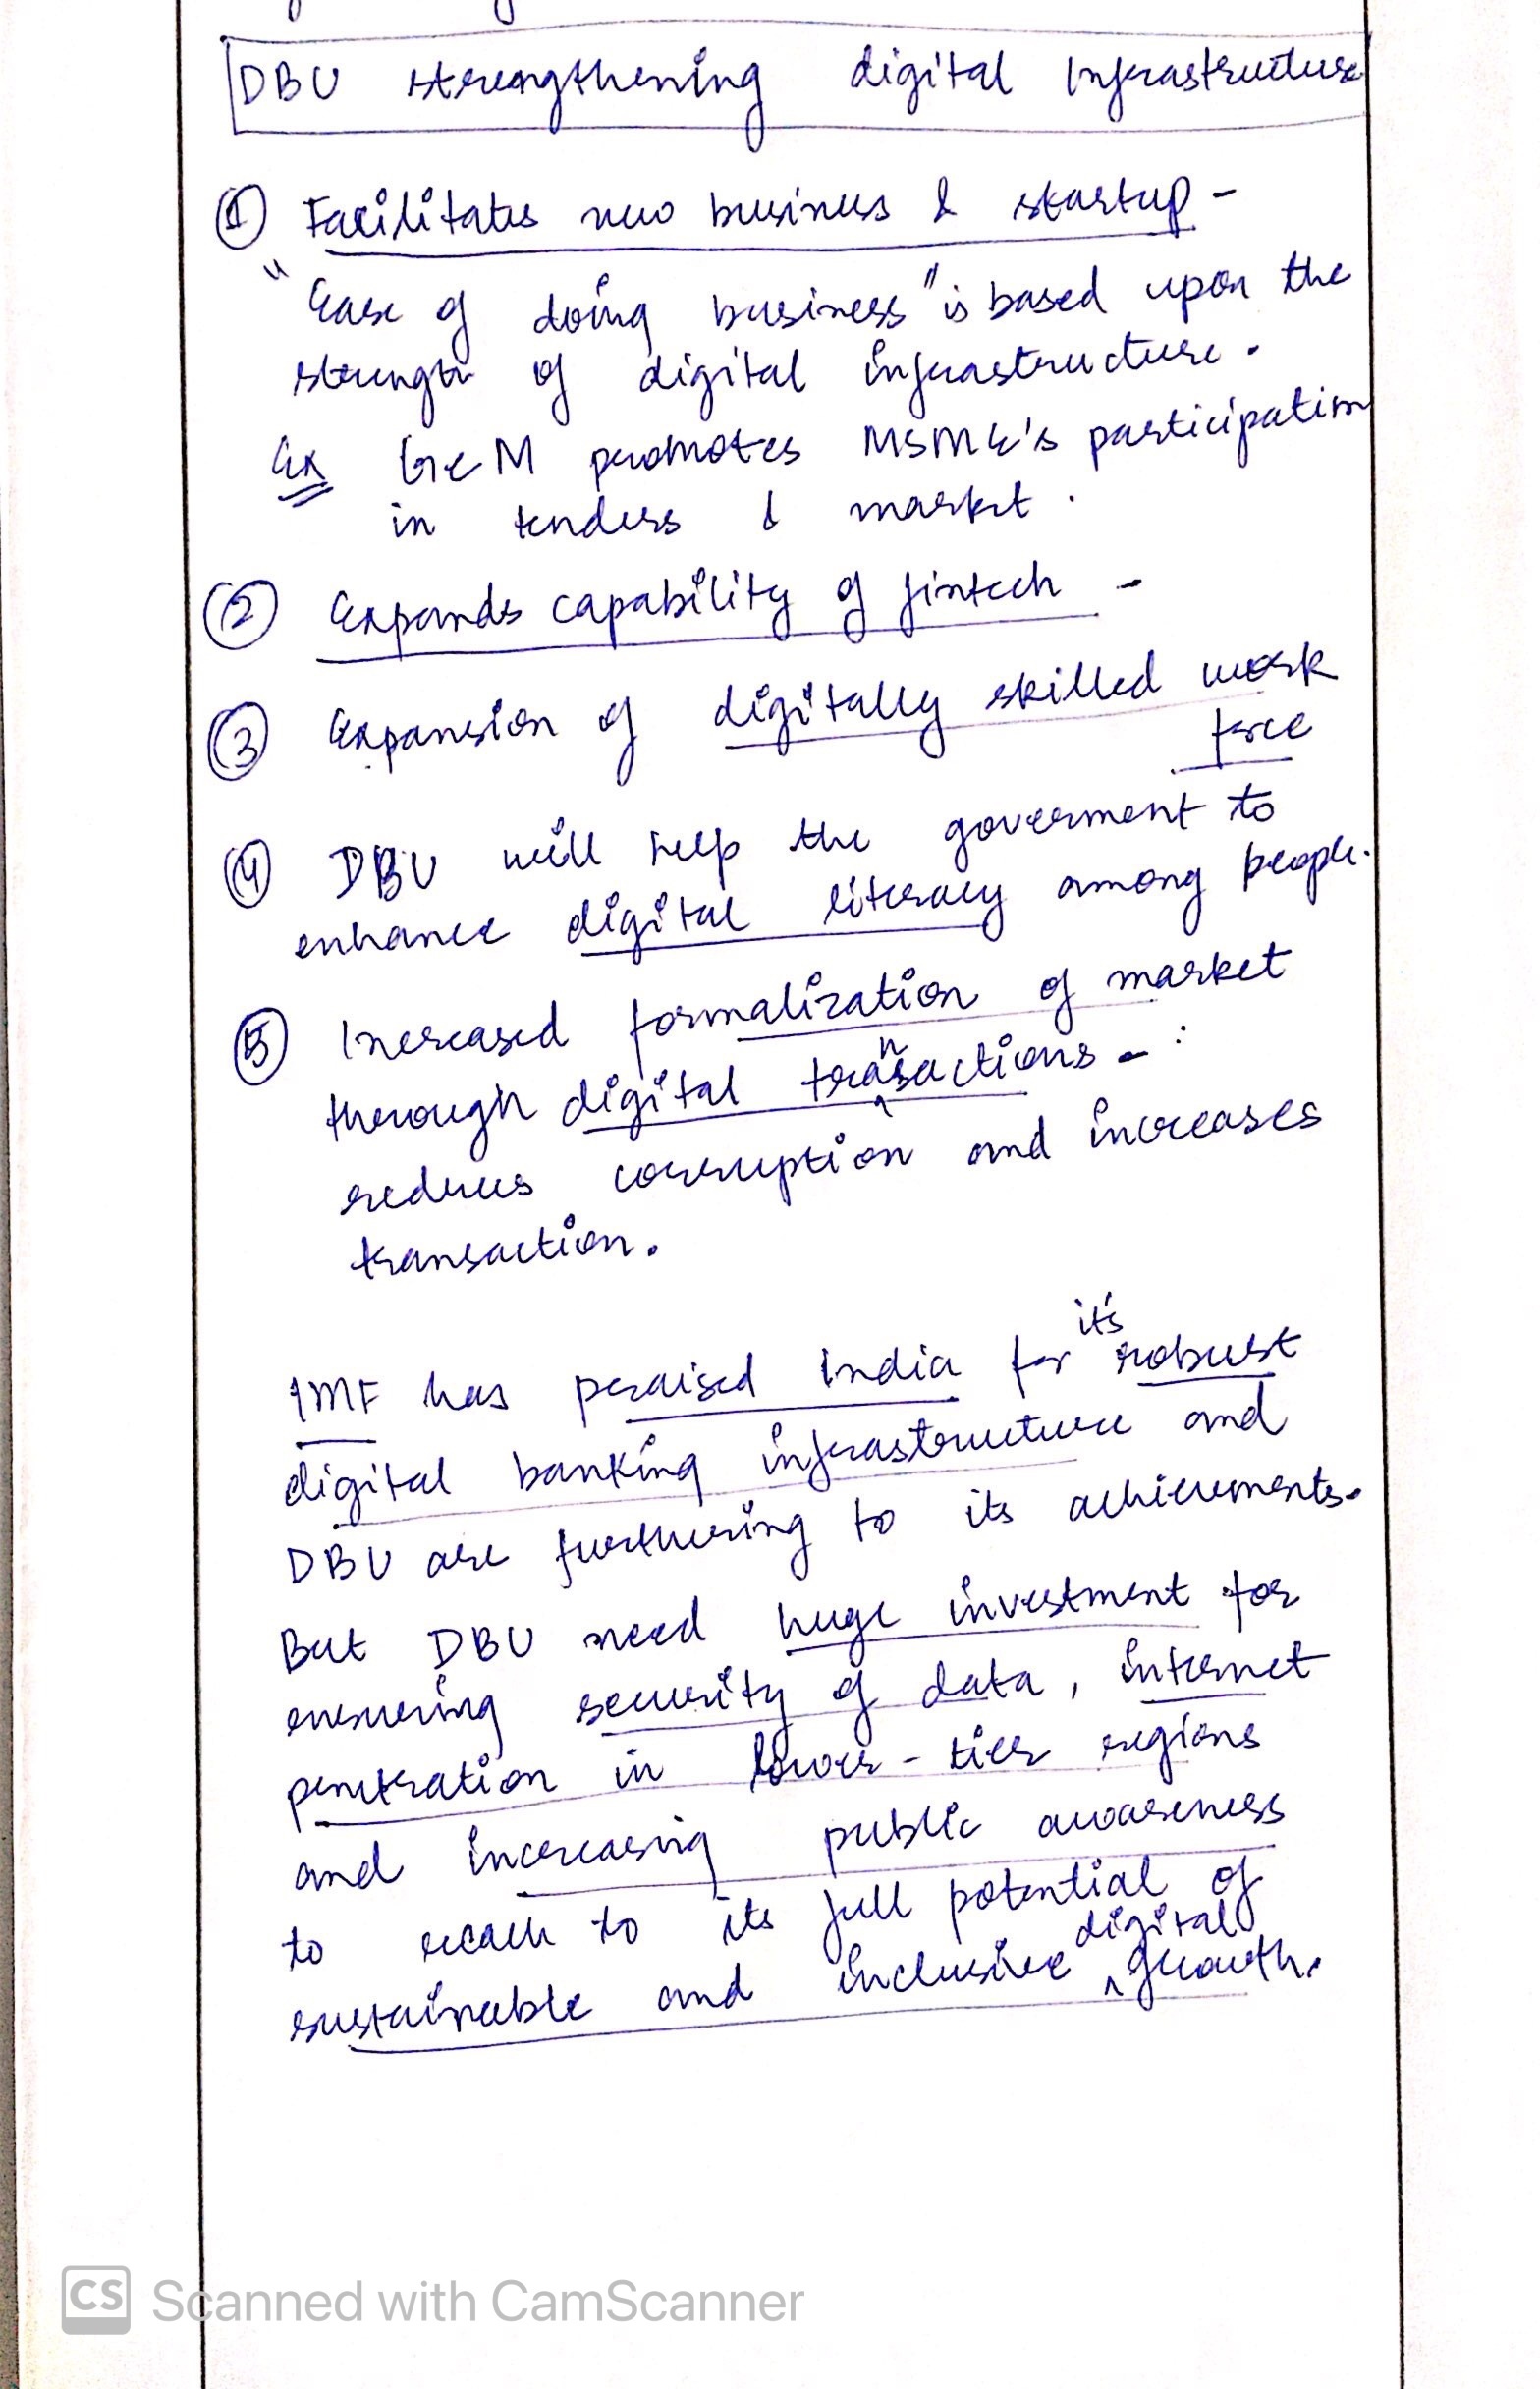 DBU strengthening digital Infrastructure
① Facilitates new business & startup -
"Ease of doing business" is based upon the
strength of digital infrastructure.
Ex GeM promotes MSME's participation
in tenders & market.
② Expands capability of fintech -
③ Expansion of digitally skilled work
force
④ DBU will help the goverment to
enhance digital literacy among people.
⑤ Increased formalization of market
through digital transactions - :
reduces corruption and increases
transaction.
IMF has praised India for it's robust
digital banking infrastructure and
DBU are furthering to its achievements.
But DBU need huge investment for
ensuring security of data, internet
penetration in lower-tier regions
and increasing public awareness
to reach to its full potential of
sustainable and inclusive digital growth.
CS Scanned with CamScanner